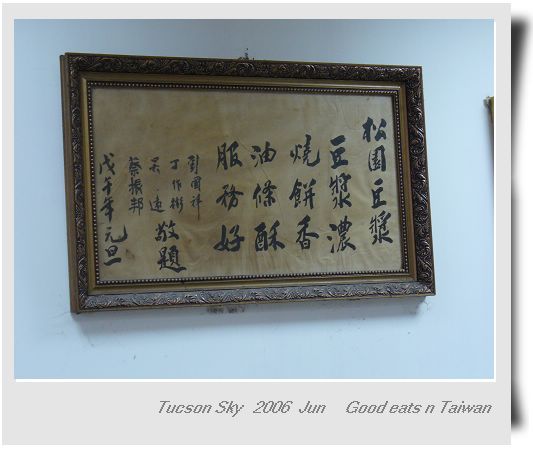 松園豆漿
豆漿濃
燒餅香
油條酥
服務好
劉國祥
丁作彬
遠
蔡振邦
敬題
戊午年元旦
Tucson Sky 2006 Jun Good eats n Taiwan